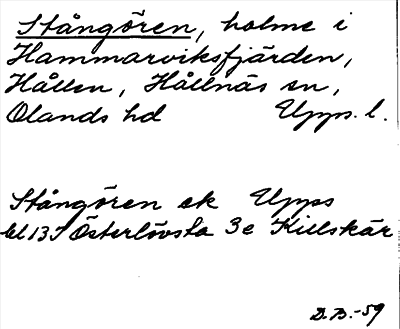 Stångören, holme i
Hammarviksfjärden,
Hållen, Hållnäs sn,
Olands hd Upps. l.
Stångören ek Upps
bl 13 I Österlövsta 3e Killskär
D.B.-59